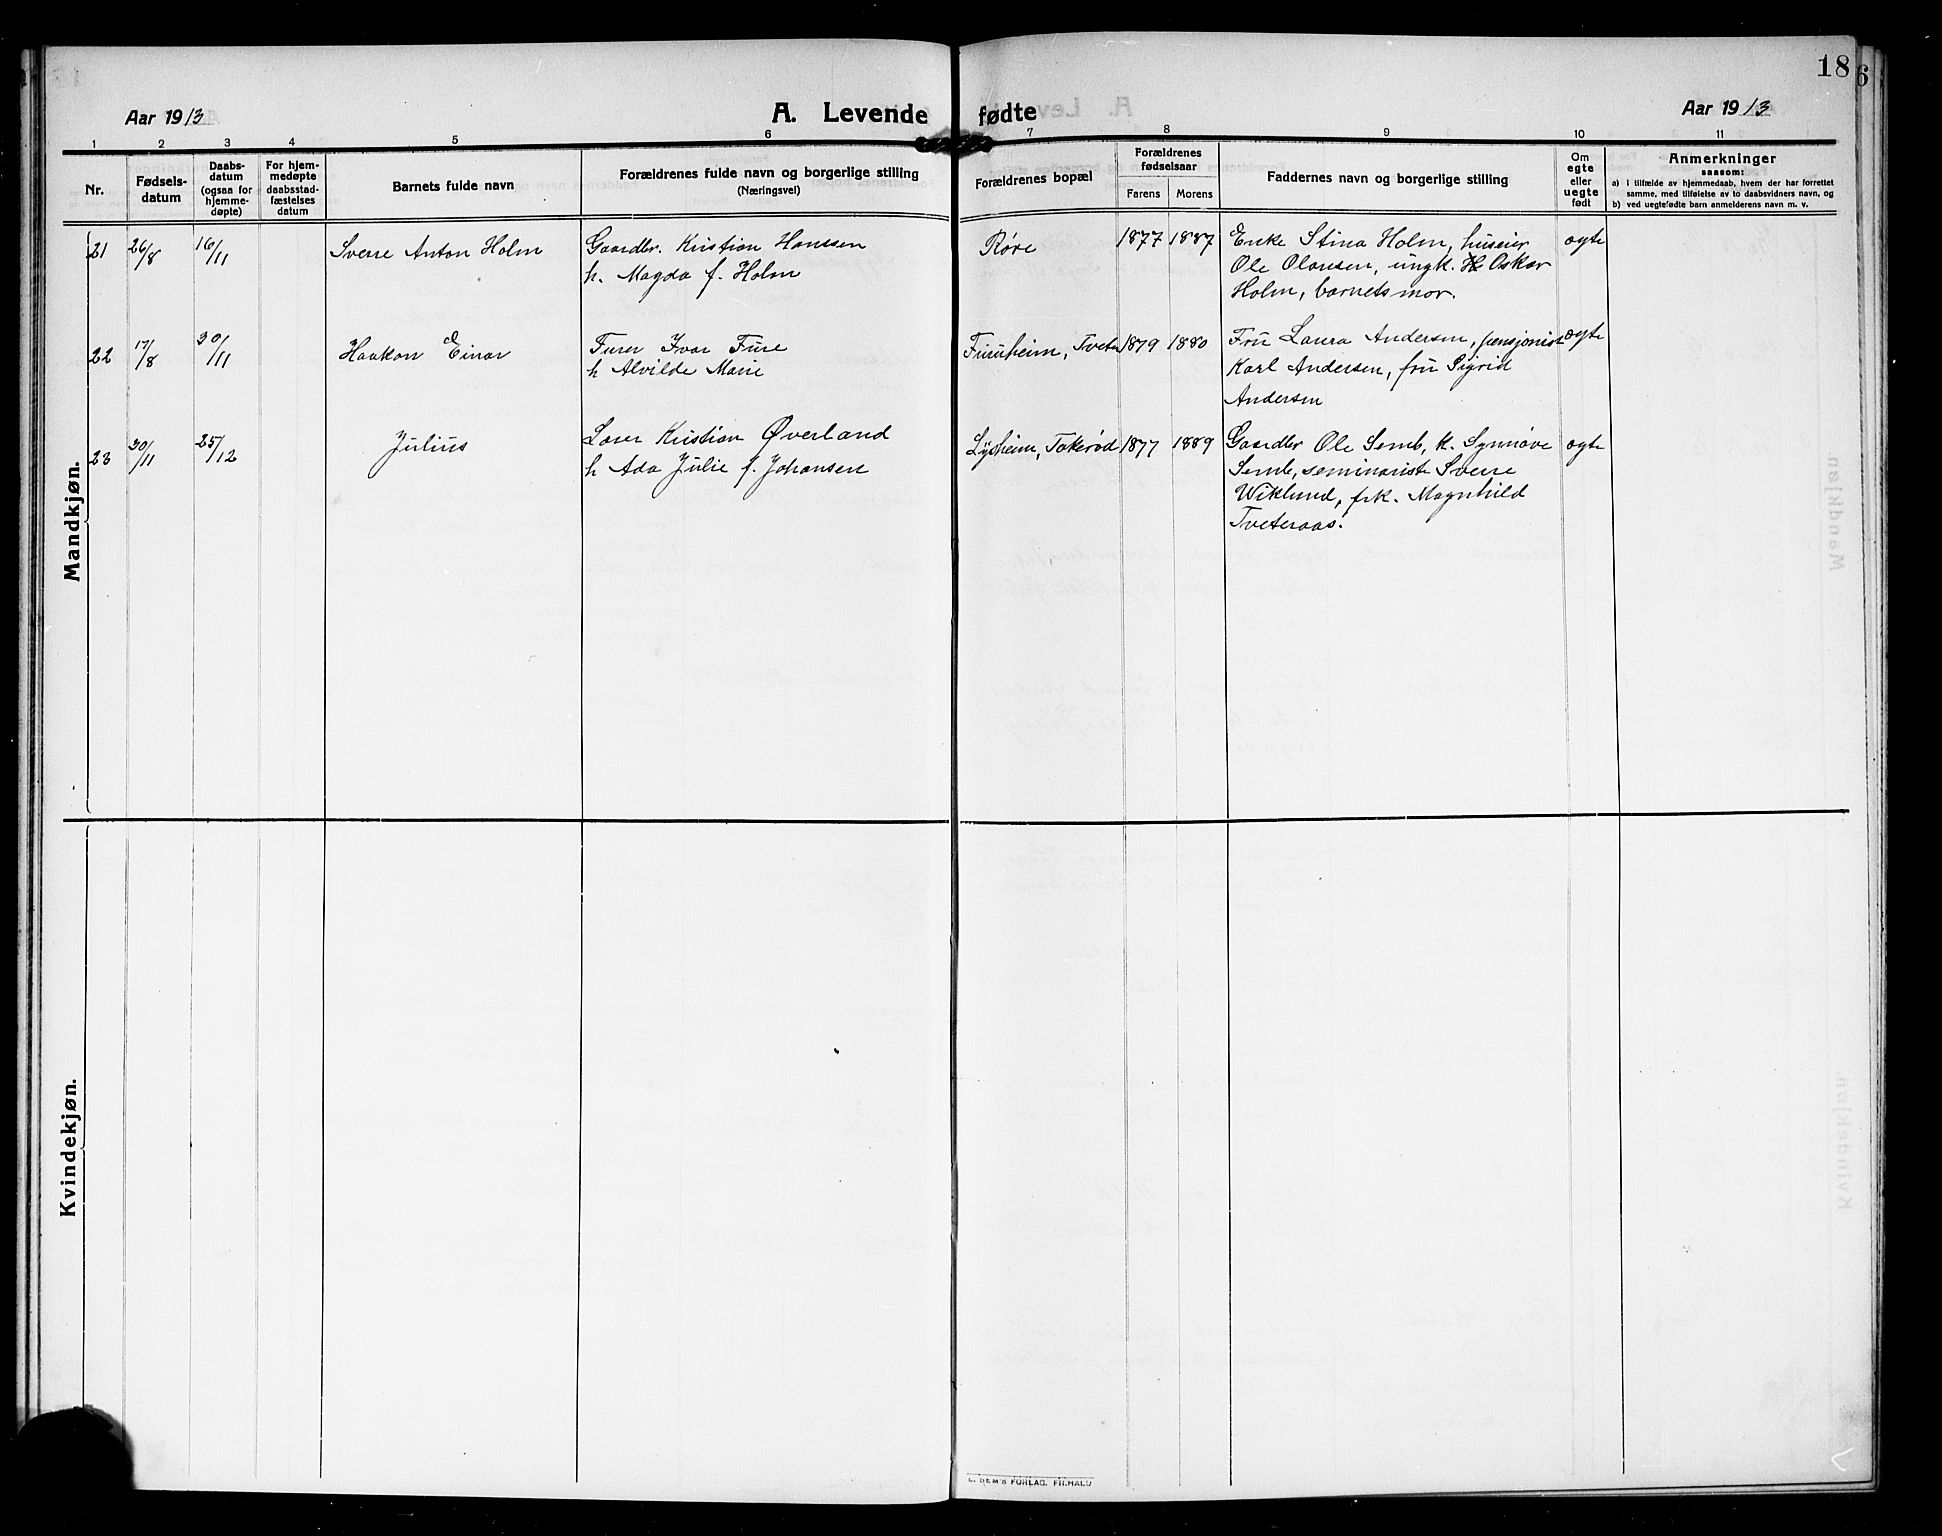 18
6
Aar 1913
A. Levende fødte
Aar 1913
1 2 3 4 5 6 7 8 9 10 11
Nr.
Fødsels-
datum
Daabs-
datum
(ogsaa for
hjemme-
døpte)
For hjem-
medøpte
daabsstad-
fæstelses
datum
Barnets fulde navn
Forældrenes fulde navn og borgerlige stilling
(Næringsvei)
Forældrenes bopæl
Forældrenes
fødselsaar
Farens Morens
Faddernes navn og borgerlige stilling
Om
egte
eller
uegte
født
Anmerkninger
saasom:
a) i tilfælde av hjemmedaab, hvem der har forrettet
samme, med tilføielse av to daabsvidners navn, og
b) ved uegtefødte barn anmelderens navn m. v.
Mandkjøn.
21 26/8 16/11 Sverre Anton Holm Gaardbr. Kristian Hanssen Røre 1877 1887 Enke Stina Holm, huseier ægte
h. Magda f. Holm Ole Olansen, ungk. Oskar
Holm, barnets mor.
22 17/8 30/11 Haakon Einar Furer Ivar Fure Furuheim, Tveten 1879 1880 Fru Laura Andersen, pensjonist ægte
h Alvilde Marie Karl Andersen, fru Sigrid
Andersen
23 30/11 25/12 Julius Lærer Kristian Øverland Lysheim, Takerød 1877 1889 Gaardbr Ole Semb, k. Synnøve ægte
h Ada Julie f. Johansen Semb, seminariste Sverre
Wiklund, frk. Magnhild
Tveteraas.
Kvindekjøn.
E. SEM'S FORLAG, FR.HALD